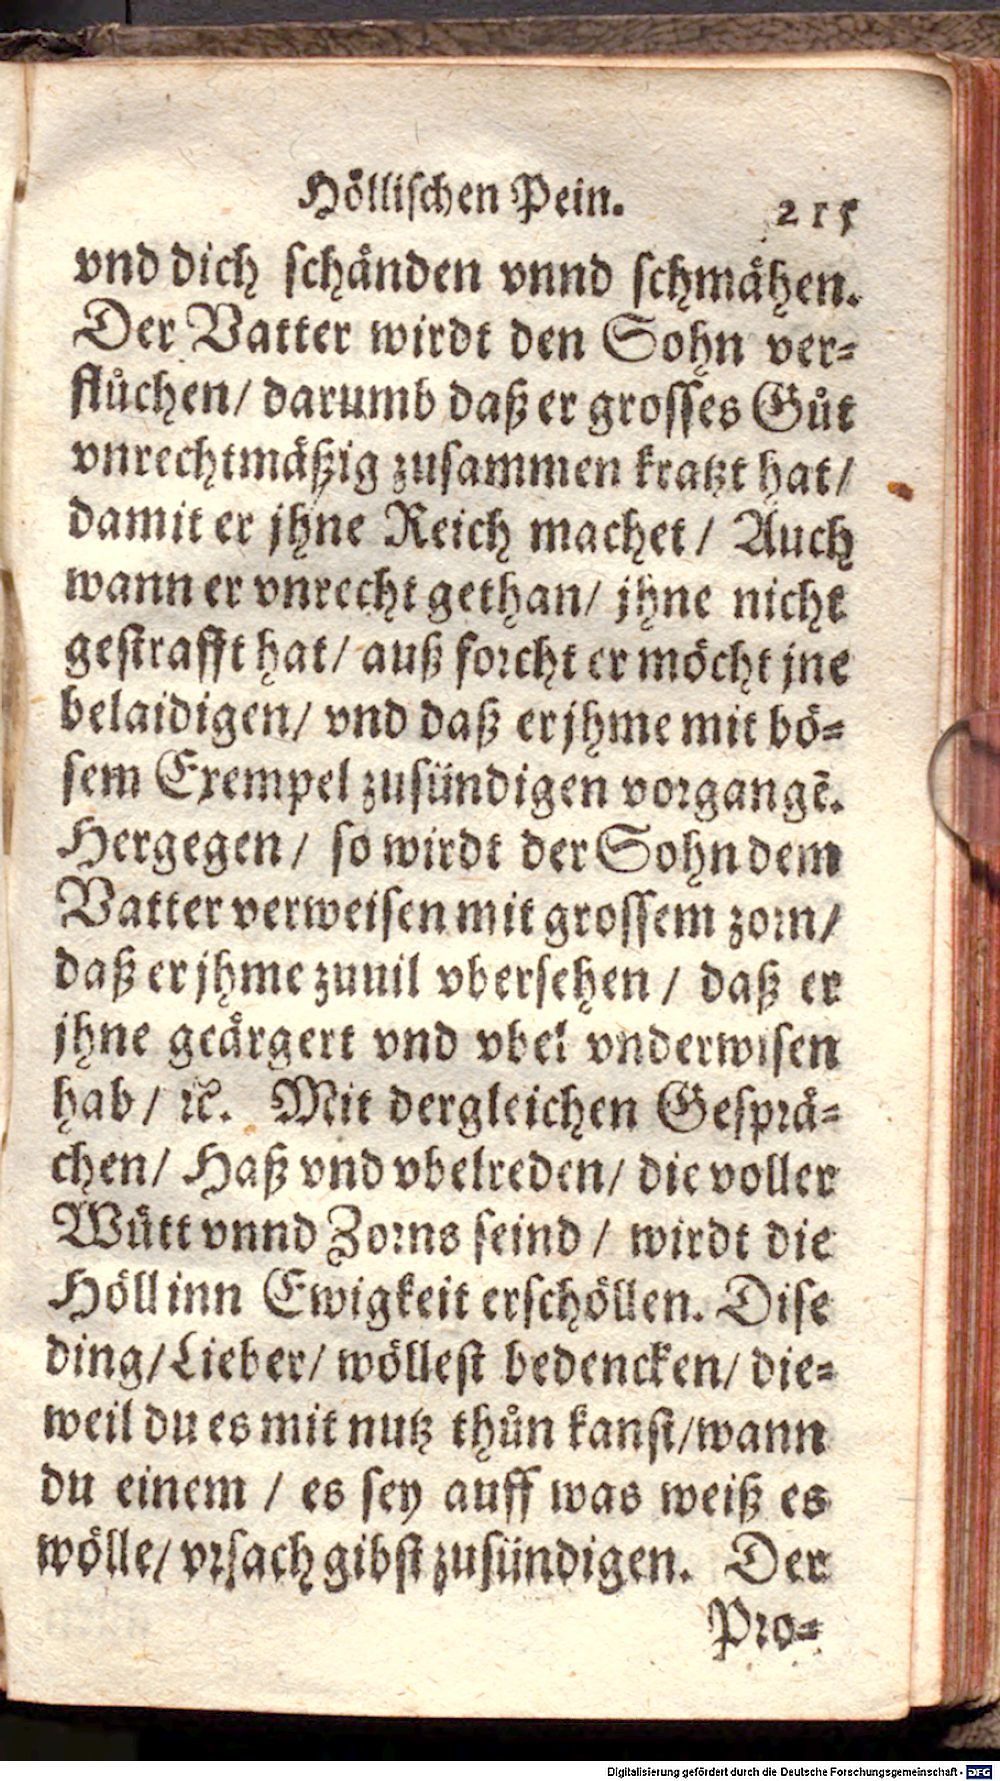 Höllischen Pein. 215
vnd dich schänden vnnd schmähen.
Der Vatter wirdt den Sohn ver-
flůchen/ darumb daß er grosses Gůt
vnrechtmäßig zusammen kratzt hat/
damit er jhne Reich machet/ Auch
wann er vnrecht gethan/ jhne nicht
gestrafft hat/ auß forcht er möcht jne
belaidigen/ vnd daß er jhme mit bö-
sem Exempel zusündigen vorgangẽ.
Hergegen/ so wirdt der Sohn dem
Vatter verweisen mit grossem zorn/
daß er jhme zuuil vbersehen/ daß er
jhne geärgert vnd vbel vnderwisen
hab/ ꝛc. Mit dergleichen Gesprä-
chen/ Haß vnd vbelreden/ die voller
Wütt vnnd Zorns seind/ wirdt die
Höll inn Ewigkeit erschöllen. Dise
ding/ Lieber/ wöllest bedencken/ die-
weil du es mit nutz thůn kanst/ wann
du einem/ es sey auff was weiß es
wölle/ vrsach gibst zusündigen. Der
Pro-
Digitalisierung gefördert durch die Deutsche Forschungsgemeinschaft - DFG